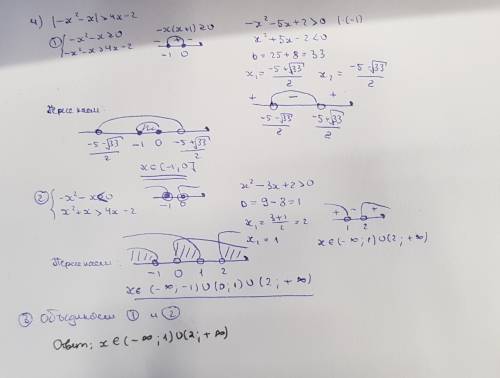 4) |-x²-x| > 4x-2
① { -x²-x ≥ 0
-x²-x > 4x-2
-x(x+1) ≥ 0
- + -
-1 0
-x²-5x+2 > 0 | (-1)
x²+5x-2 < 0
D = 25+8 = 33
x₁ = (-5+√33)/2 x₂ = (-5-√33)/2
+ - +
(-5-√33)/2 (-5+√33)/2
(-5-√33)/2 -1 0 (-5+√33)/2
x ∈ [-1; 0]
② { -x²-x < 0
x²+x > 4x-2
-1 0
x²-3x+2 > 0
D = 9-8 = 1
x₁ = (3+1)/2 = 2
x₁ = 1
+ - +
1 2
x ∈ (-∞; 1) ∪ (2; +∞)
-1 0 1 2
x ∈ (-∞; -1) ∪ (0; 1) ∪ (2; +∞)
③ Объединяем ① и ②
Ответ: x ∈ (-∞; 1) ∪ (2; +∞)